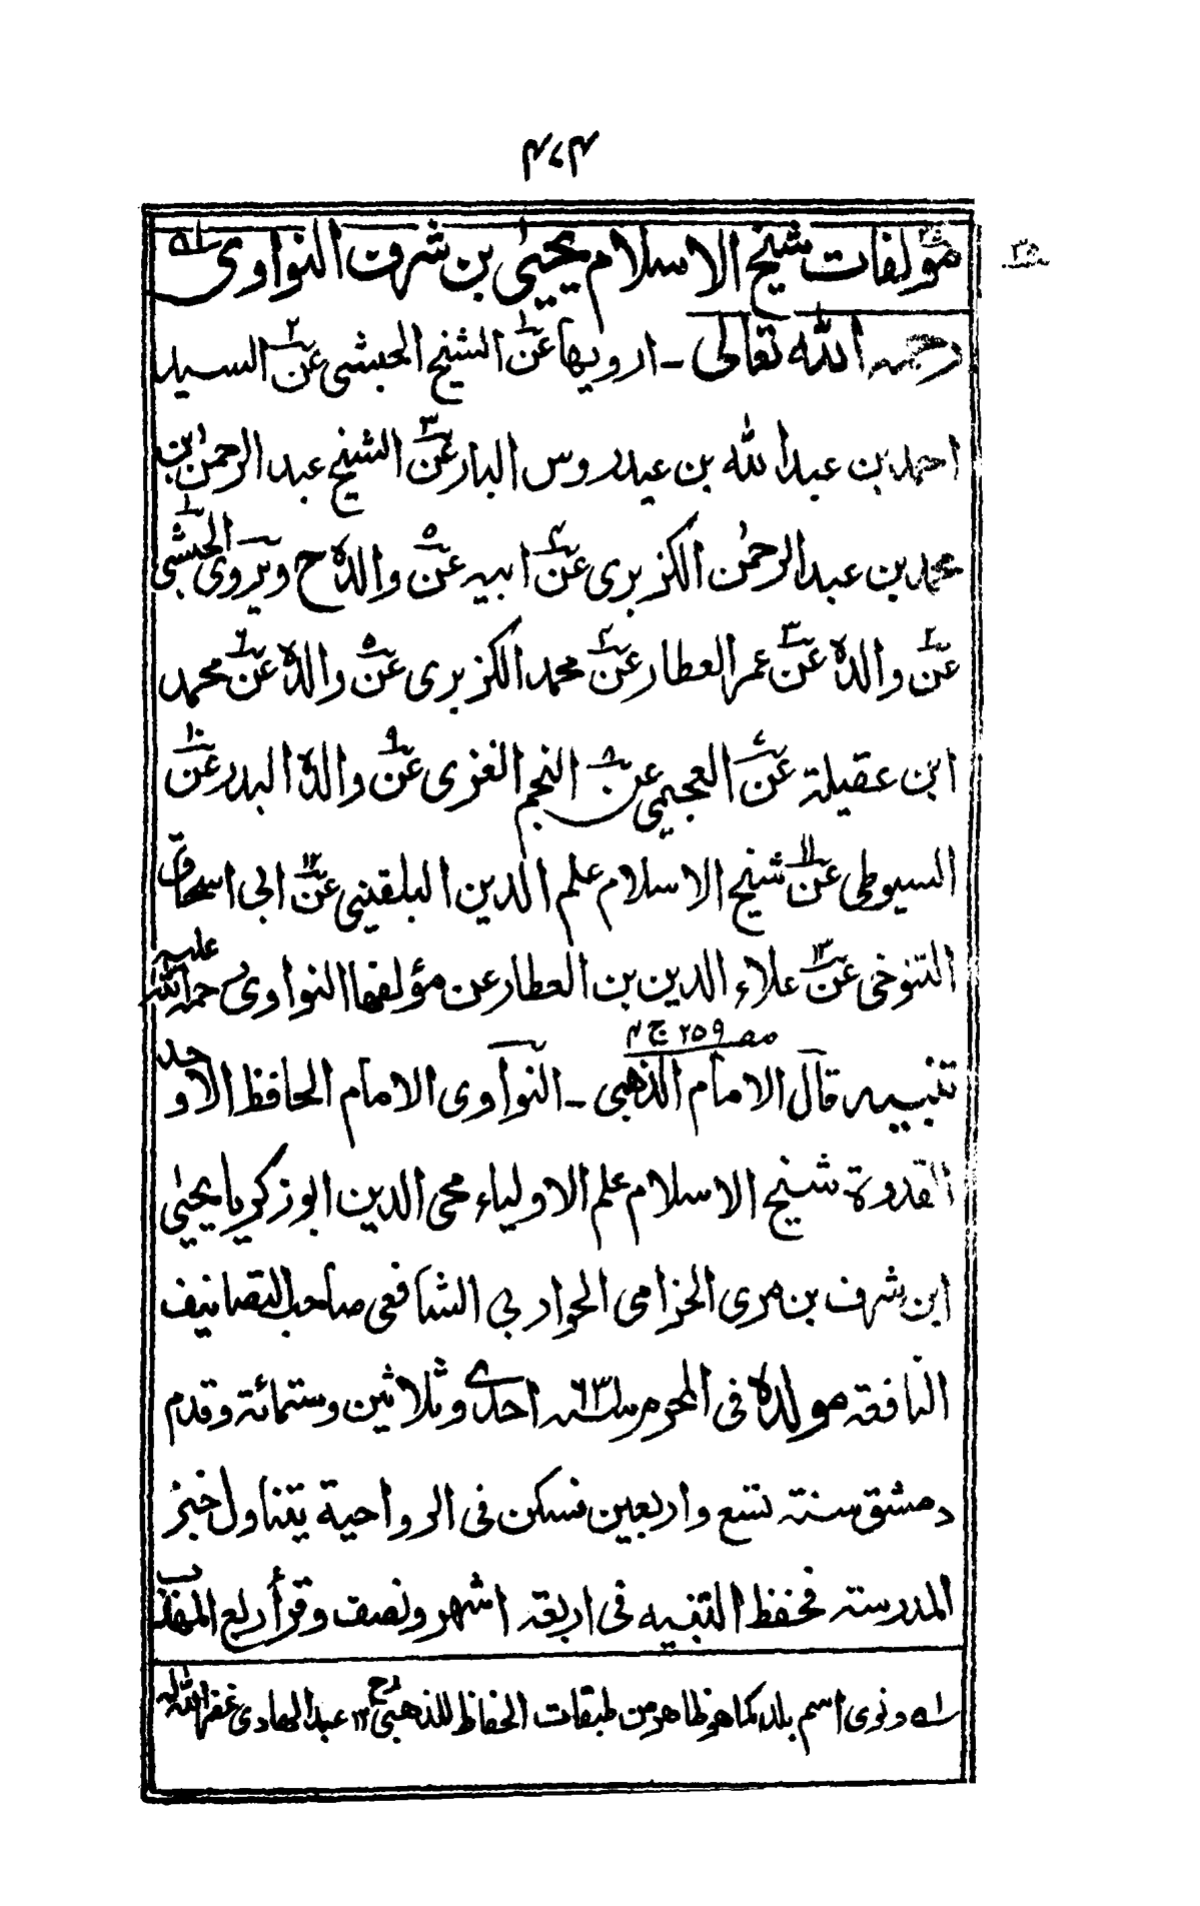 ٤٧٤
مؤلفات شيخ الاسلام يحيىٰ بن شرف النواوى ؎١
رحمہ اللّٰه تعالىٰ ـ ارويها عن١ الشيخ الحبشى عن٢ السيد
احمد بن عبد اللّٰه بن عيدروس البار عن٣ الشيخ عبد الرحمٰن بن
محمد بن عبد الرحمٰن الكزبرى عن٤ ابيه عن٥ والده ح ويروى الحبشى١
عن٢ والده عن٣ عمر العطار عن٤ محمد الكزبرى عن٥ والده عن٦ محمد
ابن عقيلة عن٧ العجيمى عن٨ النجم الغزى عن٩ والده البدر عن١٠
السيوطى عن١١ شيخ الاسلام علم الدين البلقينى عن١٢ ابى اسحاق
التنوخى عن١٣ علاء الدين بن العطار عن مؤلفها النواوى رحمة اللّٰه عليه
صـ ٢٥٩ ج ٤
تنبيه قال الامام الذهبى ـ النواوى الامام الحافظ الاوحد
القدوة شيخ الاسلام علم الاولياء محى الدين ابو زكريا يحيىٰ
ابن شرف بن مرى الخزامى الحواربى الشافعى صاحب التصانيف
النافعة مولده فى المحرم سنة ٦٣١ احدى وثلاثين وستمائة وقدم
دمشق سنة تسع واربعين فسكن فى الرواحية يتناول خبز
المدرسة فحفظ التنبيه فى اربعة اشهر ونصف وقرأ ربع المهذب
؎١ ونوى اسم بلد كما هو ظاهر من طبقات الحفاظ للذهبى رح ١٢ عبد الهادى غفر اللّٰه له